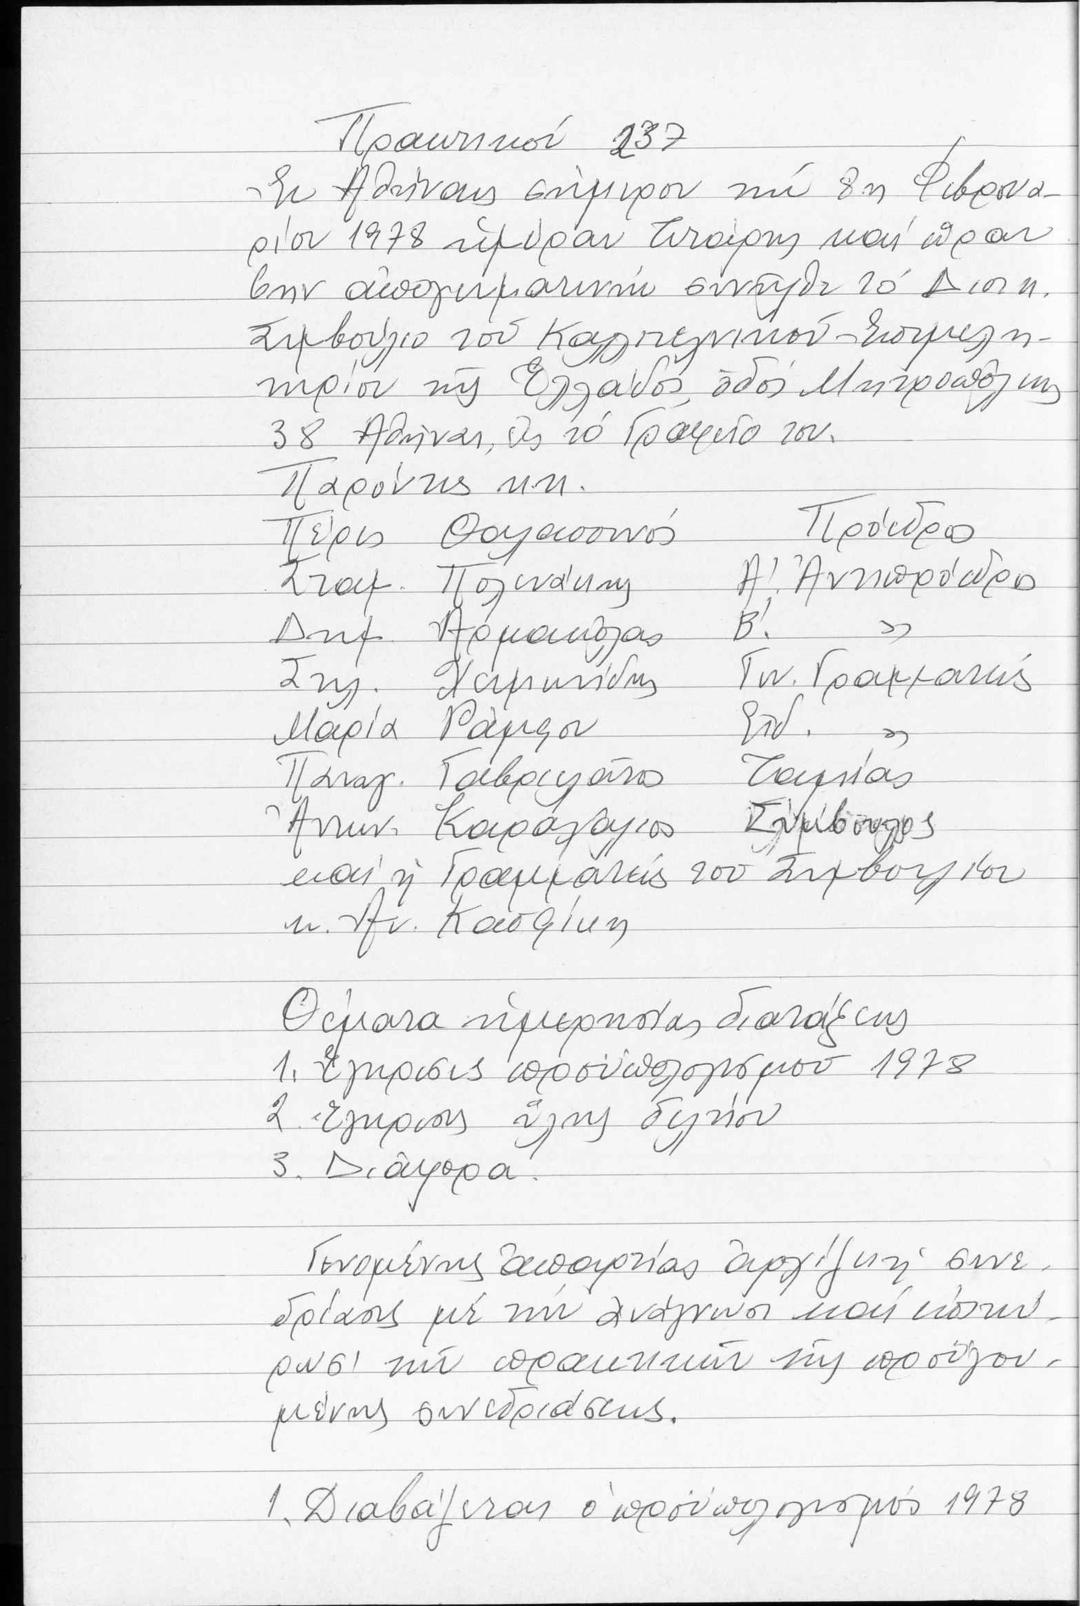 Πρακτικόν 237
Ἐν Ἀθήναις σήμερον τήν 8η Φεβρουα-
ρίου 1978 ἡμέραν Τετάρτης καί ὥραν
6ην ἀπογευματινήν συνῆλθε τό Διοικ.
Συμβούλιο τοῦ Καλλιτεχνικοῦ Ἐπιμελη-
τηρίου τῆς Ἑλλάδος, ὁδός Μητροπόλεως
38 Ἀθῆναι, εἰς τό Γραφεῖο του.
Παρόντες κ.κ.
Πέρις Θαλασσινός Πρόεδρος
Σταμ. Πολενάκης Α'. Ἀντιπρόεδρος
Δημ. Ἀρμακόλας Β'. »
Στυλ. Χαιμενίδης Γεν. Γραμματεύς
Μαρία Ράμφου Εἰδ. »
Παναγ. Γαβριελᾶτος Ταμίας
Ἀντων. Καράλαγιος Σύμβουλος
καί ἡ Γραμματεύς τοῦ Συμβουλίου
κ. Ἀν. Κασφίκη
Θέματα ἡμερησίας διατάξεως
1. Ἔγκρισις προϋπολογισμοῦ 1978
2. Ἔγκρισις ὕλης δελτίου
3. Διάφορα.
Γενομένης ἀπαρτίας ἀρχίζει ἡ συνε-
δρίασις μέ τήν ἀνάγνωσι καί ἐπικύ-
ρωσι τῶν πρακτικῶν τῆς προηγου-
μένης συνεδριάσεως.
1. Διαβάζεται ὁ προϋπολογισμός 1978